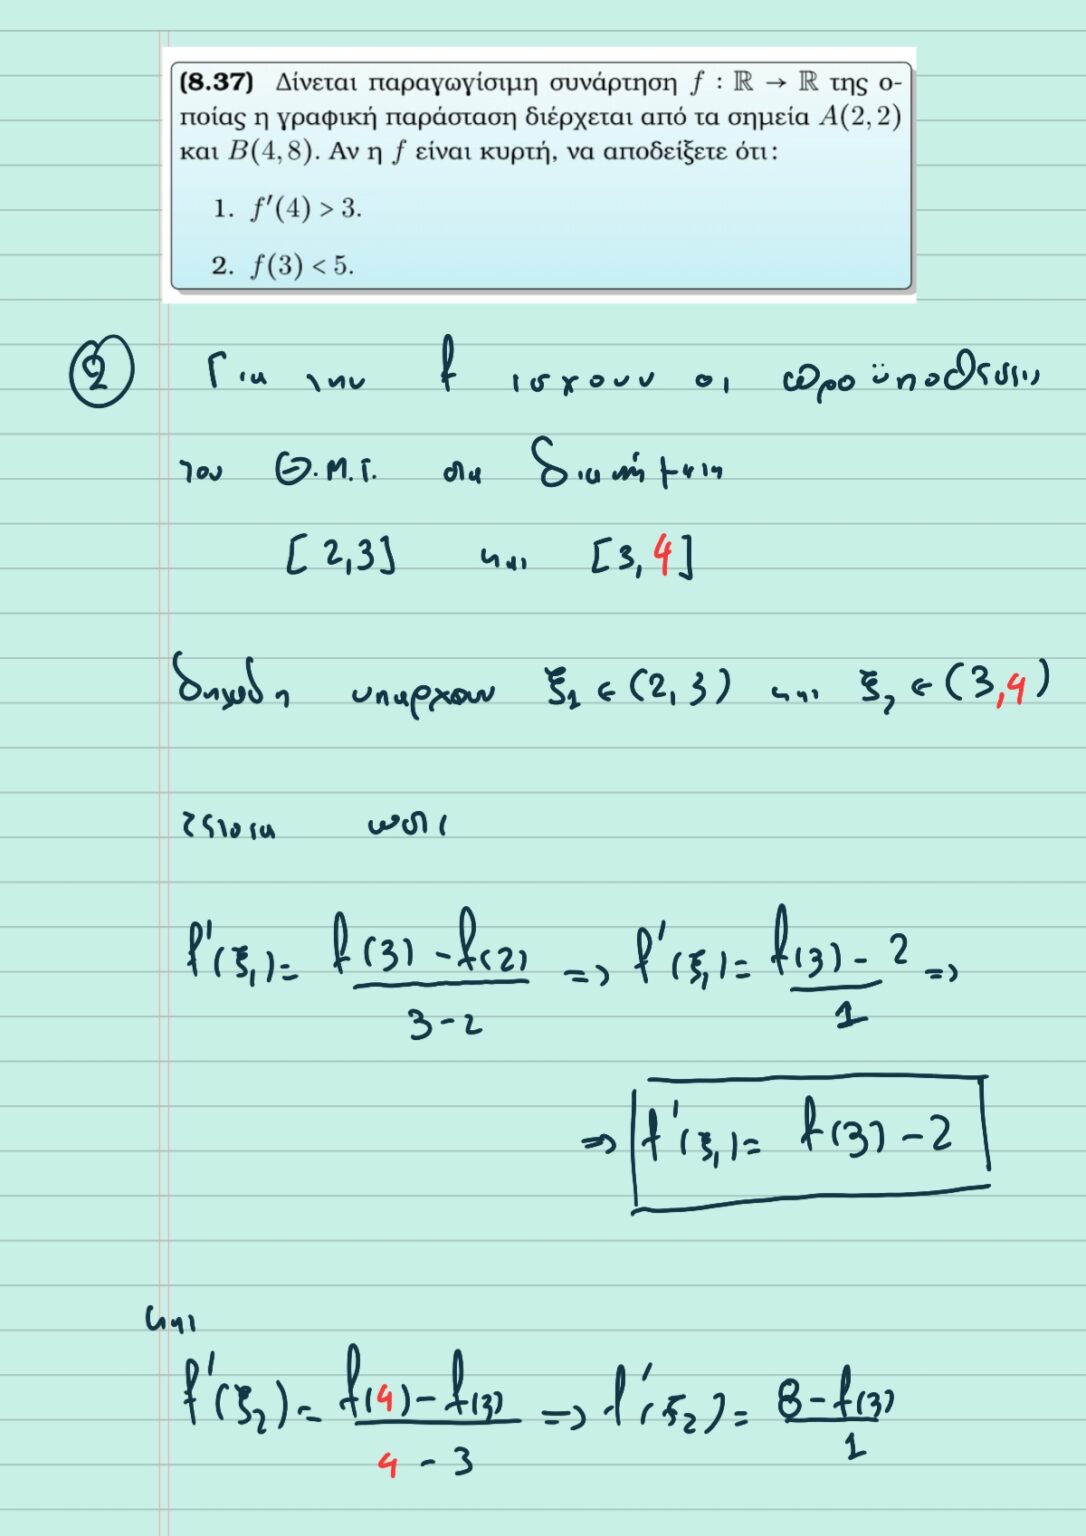 (8.37) Δίνεται παραγωγίσιμη συνάρτηση f : ℝ → ℝ της ο-
ποίας η γραφική παράσταση διέρχεται από τα σημεία A(2, 2)
και B(4, 8). Αν η f είναι κυρτή, να αποδείξετε ότι:
1. f′(4) > 3.
2. f(3) < 5.
2 Για την f ισχουν οι προϋποθεσεις
του Θ.Μ.Τ. στα διαστήματα
[2,3] και [3,4]
δηλαδη υπαρχουν ξ₁ ∈ (2,3) και ξ₂ ∈ (3,4)
τετοια ωστε
f'(ξ₁) = f(3) - f(2) / 3-2 => f'(ξ₁) = f(3) - 2 / 1 =>
=> f'(ξ₁) = f(3) - 2
και
f'(ξ₂) = f(4) - f(3) / 4 - 3 => f'(ξ₂) = 8 - f(3) / 1